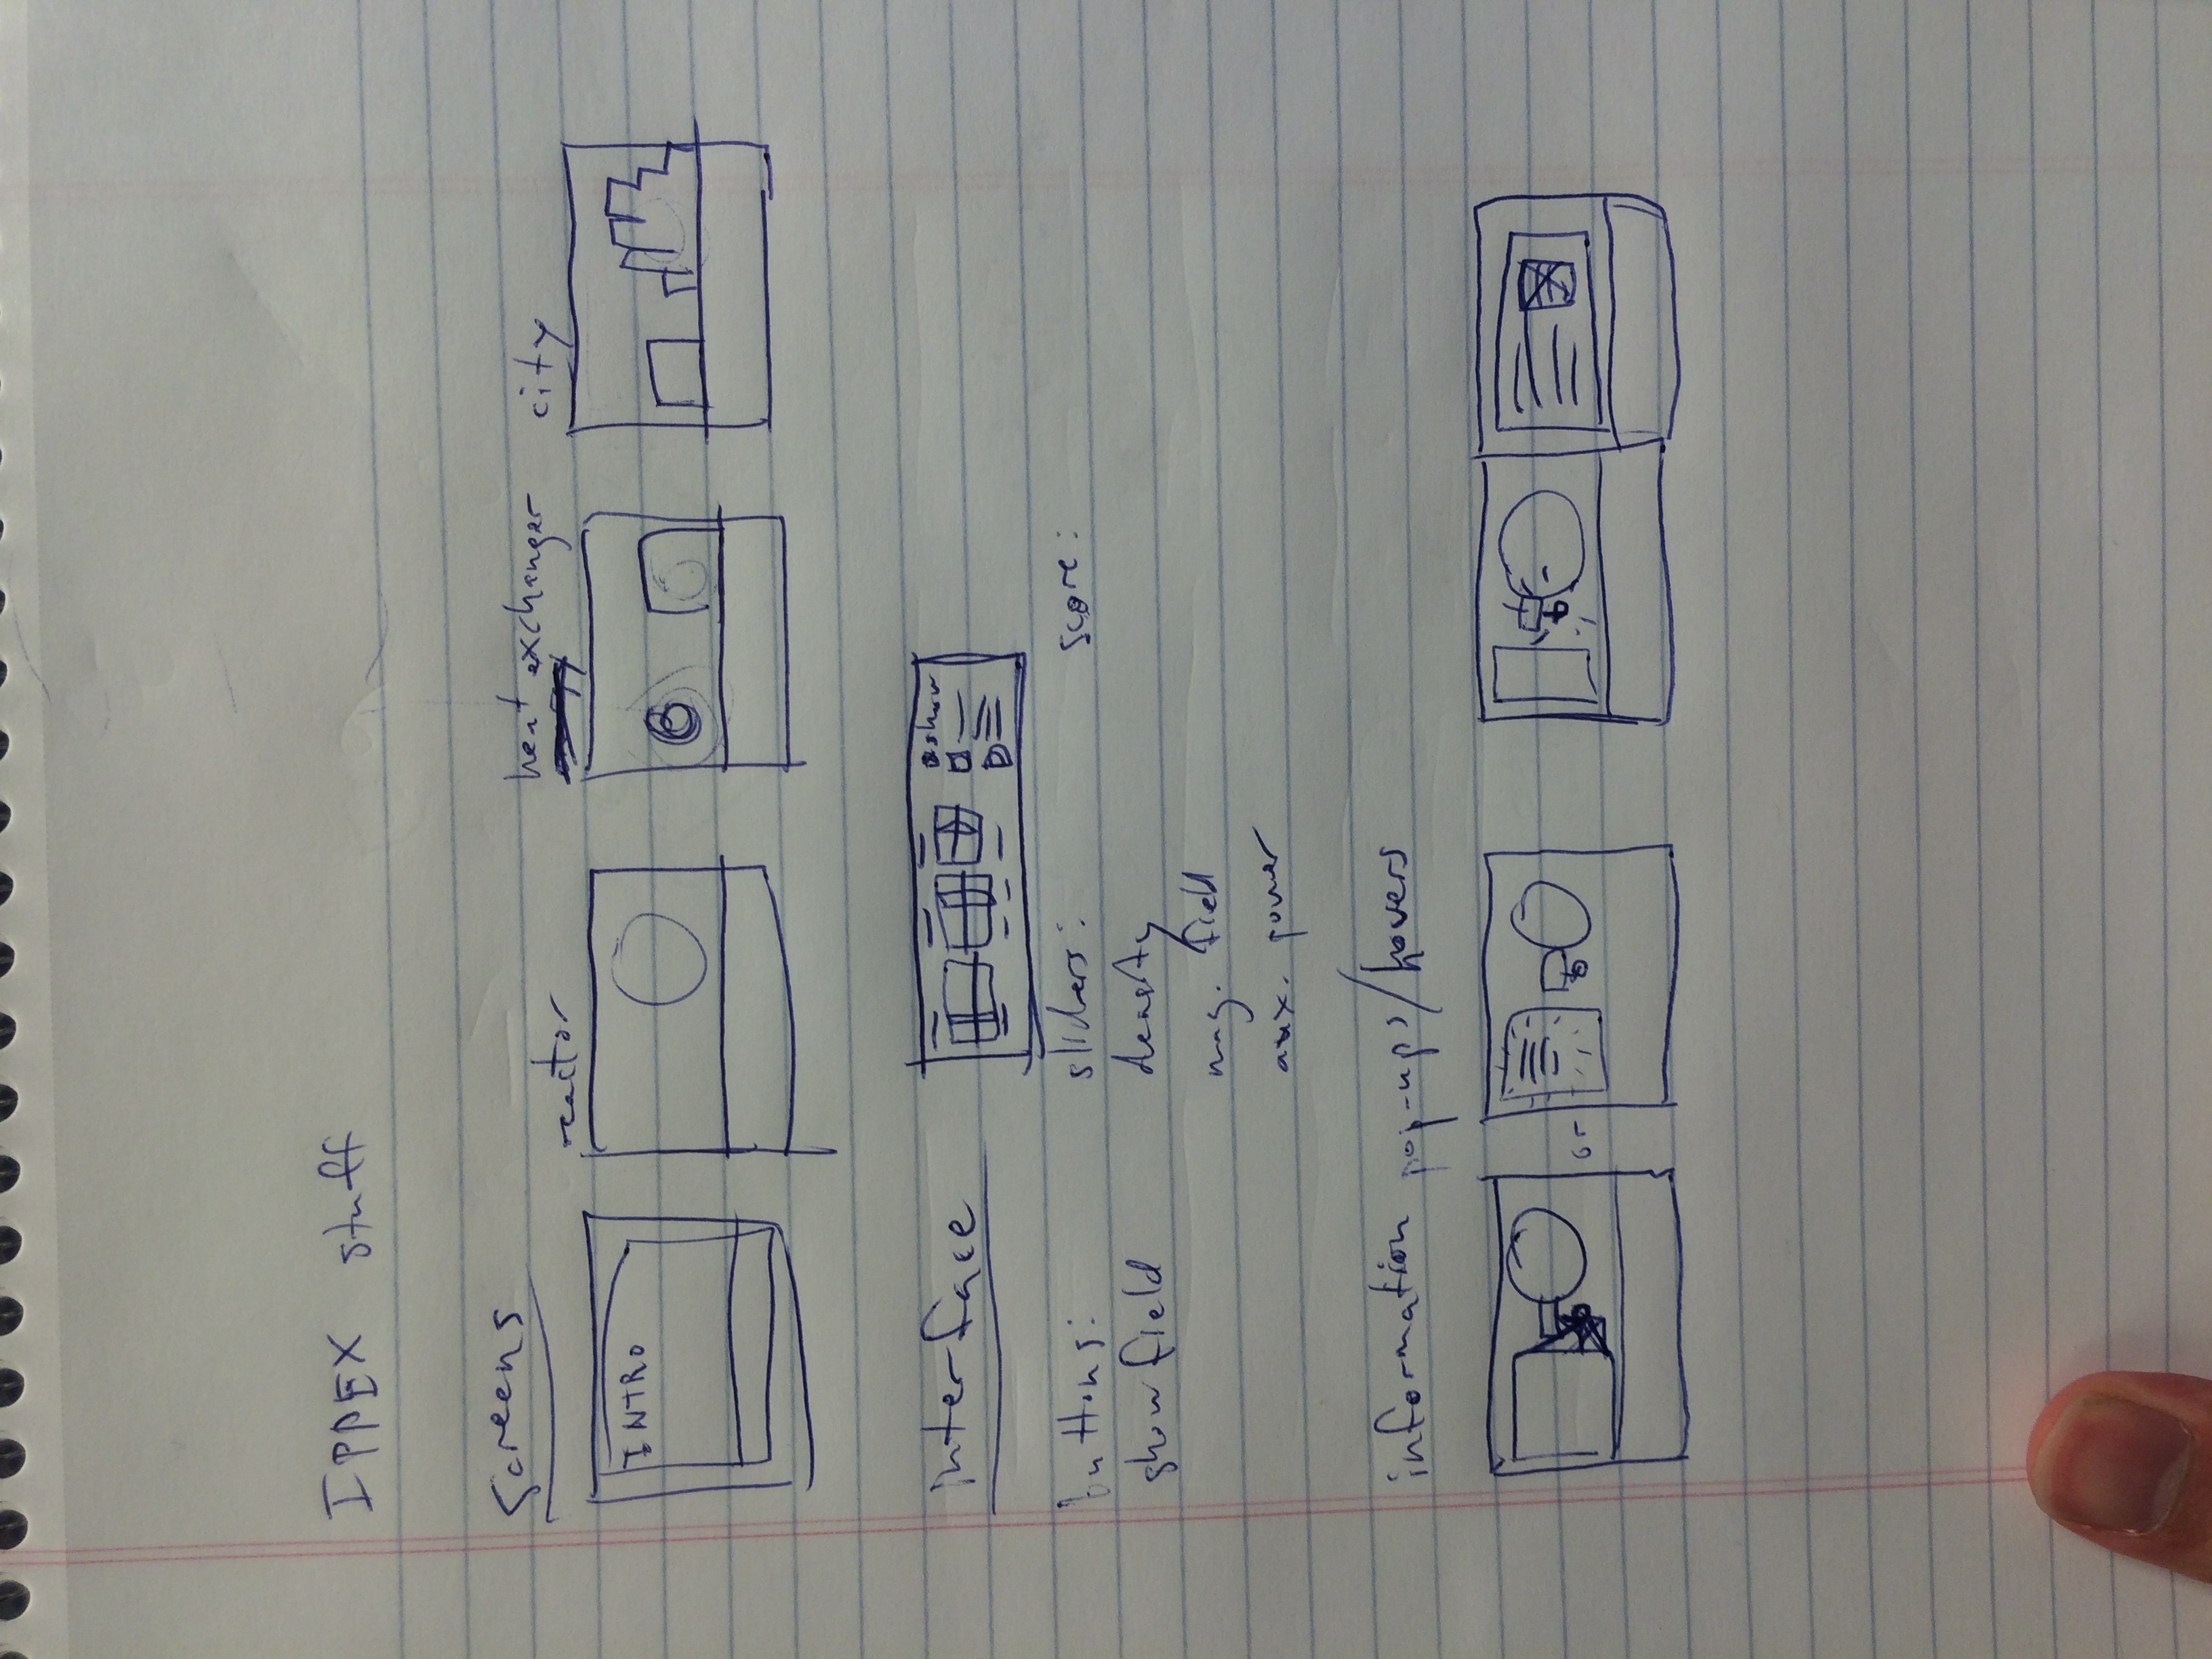 IPPEX stuff
screens
INTRO
reactor
heat exchanger
city
interface
show
buttons:
show field
sliders:
density
mag. field
aux. power
score:
information pop-ups/hovers
or